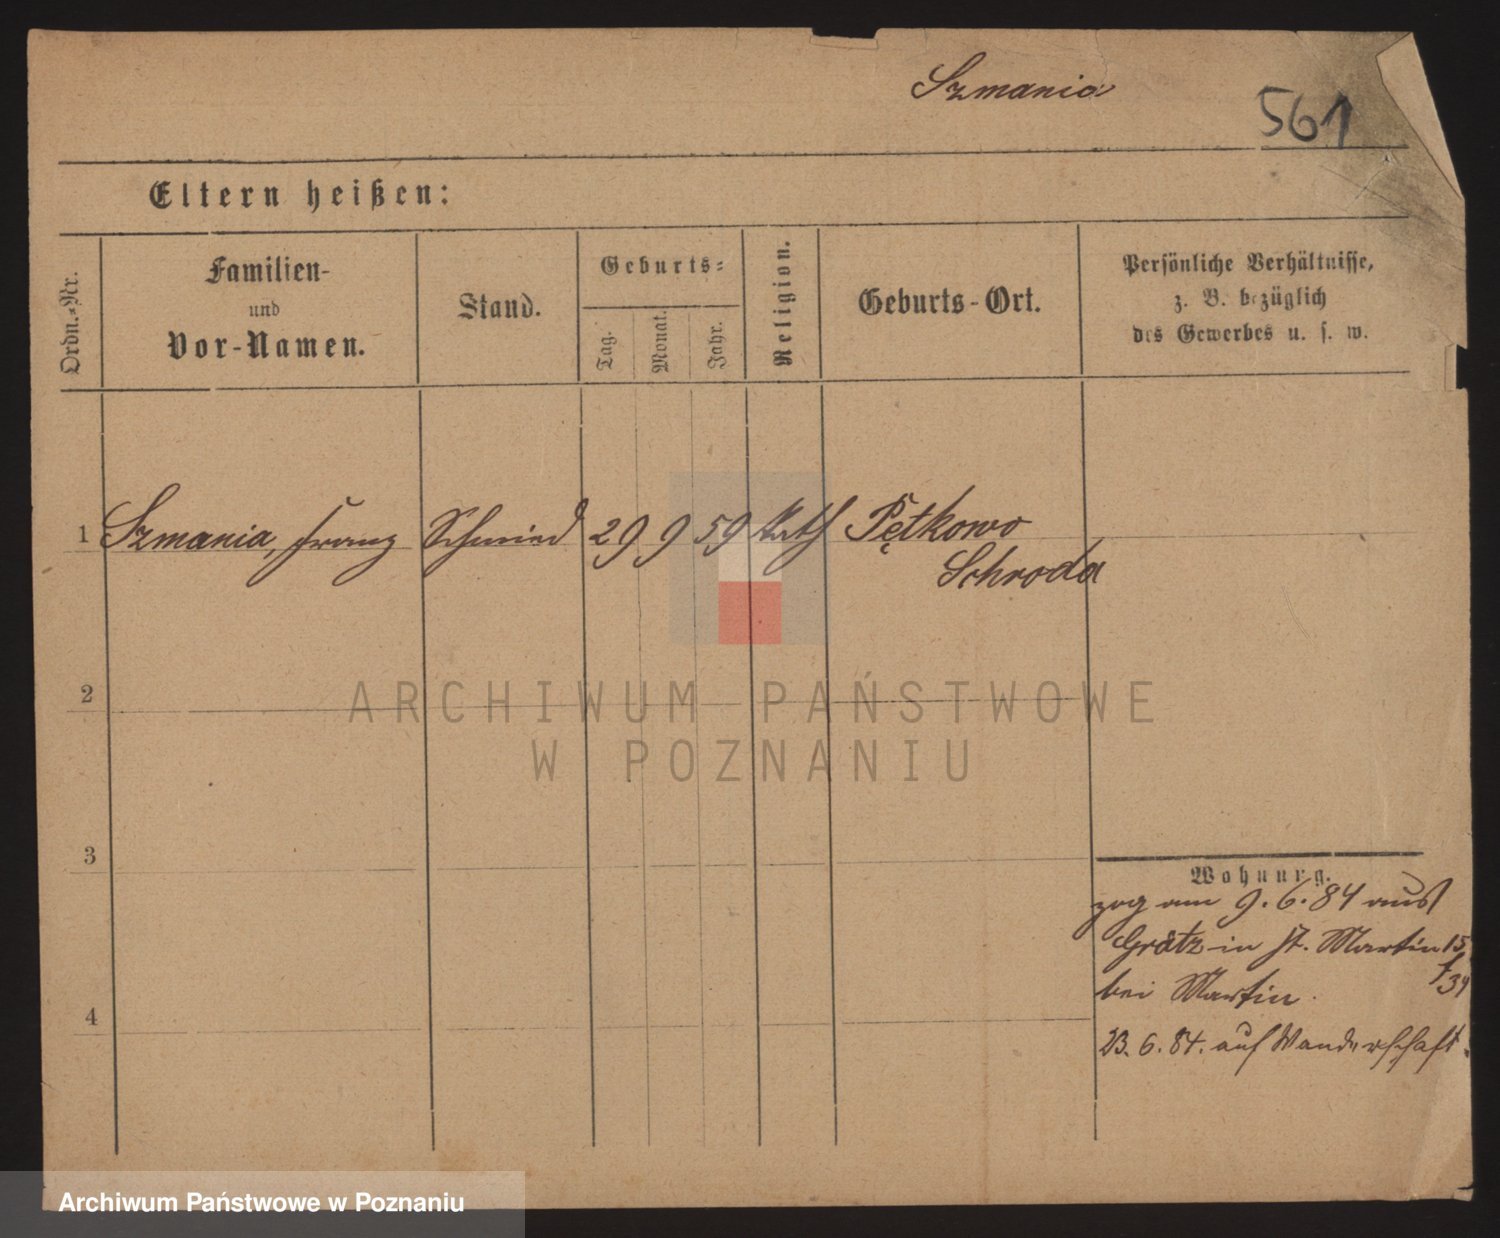 Szmania
561
Eltern heißen:
Ordn.-Nr.
Familien-
und
Vor-Namen.
Stand.
Geburts-
Tag.
Monat.
Jahr.
Religion.
Geburts-Ort.
Persönliche Verhältnisse,
z. B. bezüglich
des Gewerbes u. s. w.
1 Szmania, Franz Schmied 29 9 59 kath Pętkowo
Schroda
2
3
4
Wohnung.
zog am 9. 6. 84 aus
Grätz in St. Martin 15
bei Martin. /34
23. 6. 84. auf Wanderschaft.
ARCHIWUM PAŃSTWOWE
W POZNANIU
Archiwum Państwowe w Poznaniu